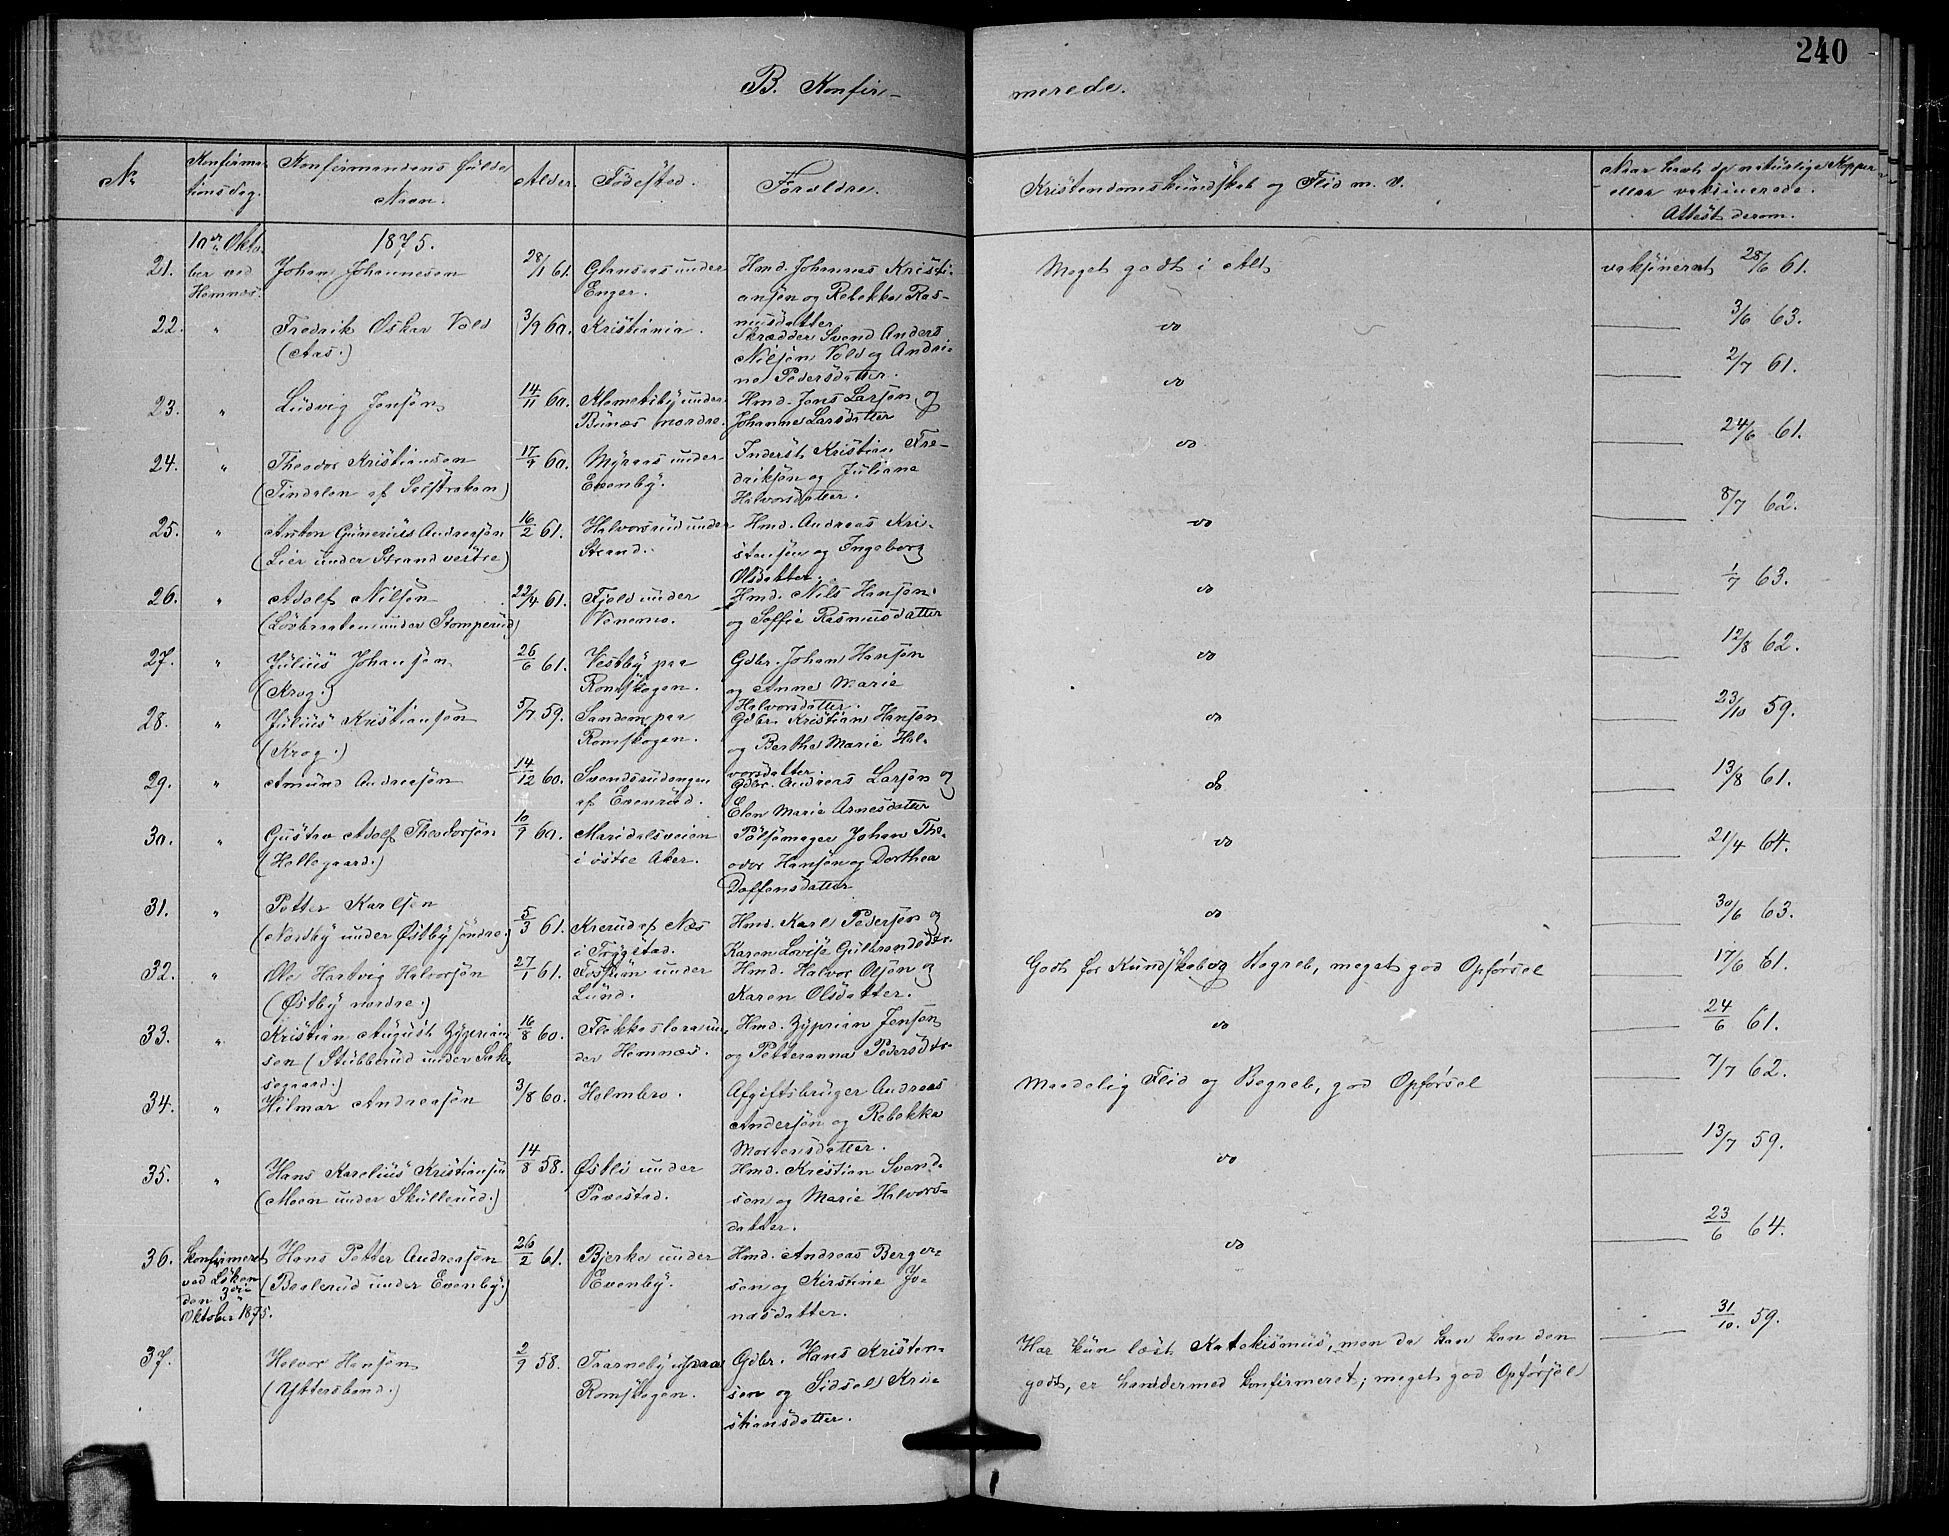 240
B. Konfir-
merede.
No
Konfirma-
tionsdag.
Konfirmandens fulde
Navn.
Alder.
Fødested.
Forældre.
Kristendomskundskab og Flid m. v.
Naar havt de naturlige Kopper
eller vaksinerede.
Attest derom.
10de Okto-
ber ved
Hemnæs.
1875.
21. Johan Johannesen 28/1 61. under
Enger.
Hmd. Johannes Kristi-
ansen og Rebekka Ras-
musdatter
Meget godt i Alt
vaksineret 28/6 61.
22. " Fredrik Oskar Vold
(Aas.)
3/9 60. Kristiania.
Skrædder Svend Anders
Nilsen Vold og Andri-
ne Pedersdatter.
do
3/6 63.
23. " Ludvig Jensen 14/11 60. Klemetsby under
Bunæs nordre.
Hmd. Jens Larsen og
Johanne Larsdatter
do
2/7 61.
24. " Theodor Kristiansen
17/9 60. Myraas under
Evenby.
Inderst Kristian Fre-
driksen og Juliane
Halvorsdatter.
do
24/6 61.
25. " Anton Gunerius Andreasen
(Lier under Strand vestre)
16/2 61. Halvorsrud under
Strand.
Hmd. Andreas Kri-
stensen og Ingeborg
Olsdatter.
do
8/7 62.
26. " Adolf Nilsen
(Løvbraaten under Stomperud)
22/4 61. Fjeld under
Venemo.
Hmd. Nils Hansen
og Soffie Rasmusdatter
do
1/7 63.
27. " Julius Johansen
(Krog.)
26/6 61. Vestby paa
Romskogen.
Gdbr. Johan Hansen
og Anne Marie
Halvorsdatter.
do
12/8 62.
28. " Julius Kristiansen
(Krog.)
5/7 59. Sandem paa
Romskogen.
Gdbr. Kristian Hansen
og Berthe Marie Hal-
vorsdatter.
do
23/10 59.
29. " Amund Andreasen
14/12 60. Svendsrudengen
af Evenrud.
Gdbr. Andreas Larsen og
Elen Marie Arnesdatter
do
13/8 61.
30. " Gustav Adolf Theodorsen
(Hellegaard.)
10/9 60. Maridalsveien
i østre Aker.
Pølsemager Johan The-
odor Hansen og Dorthea
Doffensdatter
do
21/4 64.
31. " Petter Karlsen
(Nordby under Østby søndre.)
5/3 61. Krerud af Næs
i Trygstad.
Hmd. Karl Pedersen og
Karen Lovise Gulbrandsdtr.
do
30/6 63.
32. " Ole Hartvig Halvorsen
(Østby nordre.)
27/1 61. under
Lund.
Hmd. Halvor Olsen og
Karen Olsdatter.
Godt for Kundskab og Begreb, meget god Opførsel
17/6 61.
33. " Kristian August Zyprian-
sen (Stubberud under Sak-
segaard.)
16/8 60. un-
der Hemnæs.
Hmd. Zyprian Jensen
og Petteranna Pedersdtr.
do
24/6 61.
34. " Hilmar Andreasen
3/8 60. Holmbro.
Afgiftsbruger Andreas
Andersen og Rebekka
Mortensdatter.
Maadelig Flid og Begreb, god Opførsel
7/7 62.
35. " Hans Karelius Kristiansen
(Moen under Skullerud.)
14/8 58. Østli under
Tavestad.
Hmd. Kristian Svend-
sen og Marie Halvors-
datter.
do
13/7 59.
36. Konfirmeret
ved Løken
den 3die
Oktober 1875.
Hans Petter Andreasen
(Bælerud under Evenby.)
26/2 61. Bjerke under
Evenby.
Hmd. Andreas Berger-
sen og Kirstine Jo-
nasdatter.
do
23/6 64.
37. Halvor Hansen
(Yttersbond.)
2/9 58. Taarneby paa
Romskogen.
Gdbr. Hans Kristen-
sen og Sidsel Kri-
stiansdatter.
Har kun læst Katekismus, men da han kan den
godt, er han dermed konfirmeret; meget god Opførsel
31/10. 59.